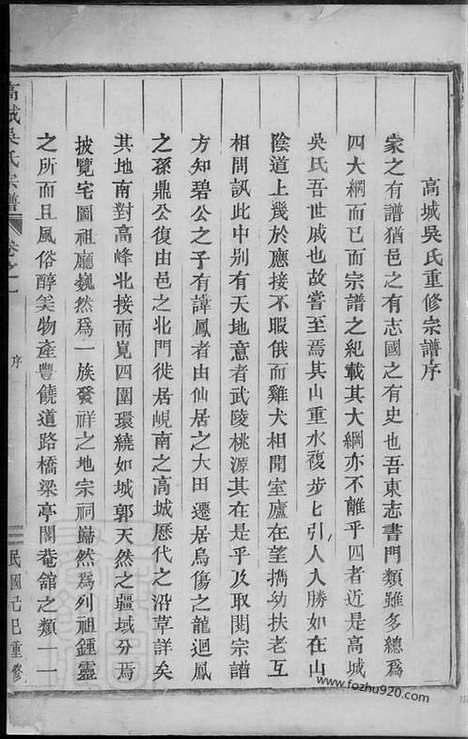 高城吳氏重修宗譜序
家之有譜猶邑之有志國之有史也吾東志書門類雖多總爲
四大綱而已而宗譜之紀載其大綱亦不離乎四者近是高城
吳氏吾世戚也故嘗至焉其山重水複步步引人入勝如在山
陰道上幾於應接不暇俄而雞犬相聞室廬在望攜幼扶老互
相問訊此中別有天地意者武陵桃源其在是乎及取閱宗譜
方知碧公之子有諱鳳者由仙居之大田遷居烏傷之龍迴鳳
之孫鼎公復由邑之北門徙居峴南之高城歷代之沿革詳矣
其地南對高峰北接兩峴四圍環繞如城郭天然之疆域分焉
披覽宅圖祖廳巍然爲一族發祥之地宗祠巋然爲列祖鍾靈
之所而且風俗醇美物產豐饒道路橋梁亭閣菴舘之類一一
高城吳氏宗譜
卷之一
序
民國己巳重修
www.fozhu920.com